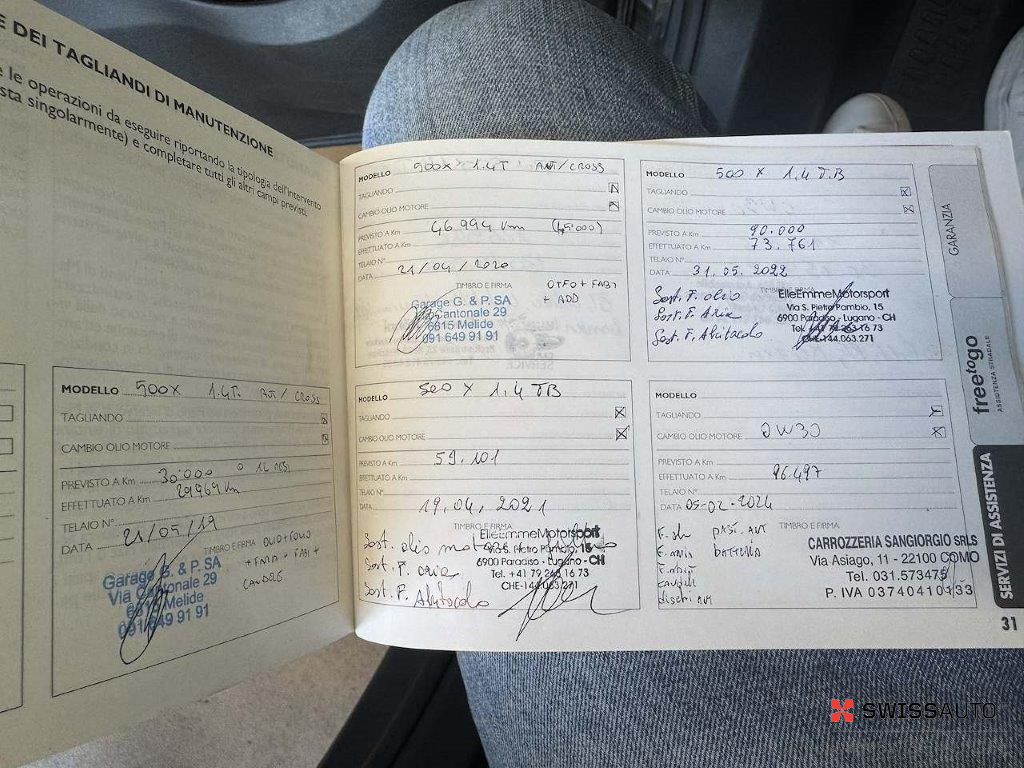 E DEI TAGLIANDI DI MANUTENZIONE
e le operazioni da eseguire riportando la tipologia dell'intervento
sta singolarmente) e completare tutti gli altri campi previsti.
MODELLO 500X 1.4T. / CROSS
TAGLIANDO
CAMBIO OLIO MOTORE
PREVISTO A Km 30'000
EFFETTUATO A Km 29969 Km
TELAIO N°
DATA 21/05/19
TIMBRO E FIRMA
Garage G. & P. SA
Via Cantonale 29
6815 Melide
091 649 91 91
MODELLO 500X 1.4T / CROSS
TAGLIANDO
CAMBIO OLIO MOTORE
PREVISTO A Km 46994 Km (45'000)
EFFETTUATO A Km
TELAIO N°
DATA 21/04/2020
TIMBRO E FIRMA
+ ADD
Garage G. & P. SA
Via Cantonale 29
6815 Melide
091 649 91 91
SERVICE
MODELLO 500 X 1.4 TB
TAGLIANDO
CAMBIO OLIO MOTORE
PREVISTO A Km 59.101
EFFETTUATO A Km
TELAIO N°
DATA 19.04.2021
TIMBRO E FIRMA
Sost. olio motore
Sost. F. aria
Sost. F. Abitacolo
ElleEmmeMotorsport
Via S. Pietro Pambio, 15
6900 Paradiso - Lugano - CH
Tel. +41 79 263 16 73
CHE-144.063.271
MODELLO 500 X 1.4 T.B
TAGLIANDO
CAMBIO OLIO MOTORE
PREVISTO A Km 90.000
EFFETTUATO A Km 73.761
TELAIO N°
DATA 31.05.2022
TIMBRO E FIRMA
Sost. F. olio
Sost. F. Aria
Sost. F. Abitacolo
ElleEmmeMotorsport
Via S. Pietro Pambio, 15
6900 Paradiso - Lugano - CH
Tel. +41 79 263 16 73
CHE-144.063.271
MODELLO
TAGLIANDO
CAMBIO OLIO MOTORE 0W30
PREVISTO A Km
EFFETTUATO A Km 96.497
TELAIO N°
DATA 05-02-2024
TIMBRO E FIRMA
CARROZZERIA SANGIORGIO SRLS
Via Asiago, 11 - 22100 COMO
Tel. 031.573475
P. IVA 03740410133
GARANZIA
freetogo
ASSISTENZA STRADALE
SERVIZI DI ASSISTENZA
31
SWISSAUTO